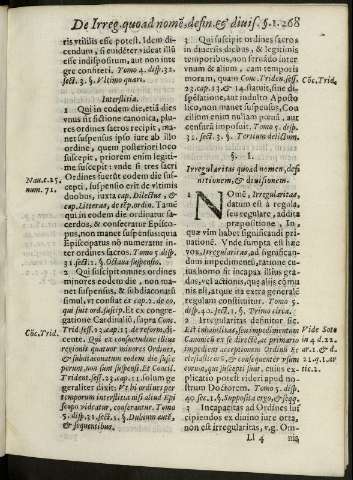 De Irreg. quoad nomē, defin. & diuis. §. 1. 268
ris vtilius esse potest. Idem di-
cendum, si euidēter ideat illū
esse indispositum, aut non inte
grè confiteri. Tomo 4. disp. 32.
sect. 3. §. Vltimo quæro.
Interstitia.
1 Qui in eodem die, etiā dies
vnus sit sictione canonica, plu-
res ordines sacros recipit, ma-
net suspensus ipso iure ab illo
ordine, quem posteriori loco
suscepit, priorem enim legiti-
me suscepit: vnde si tres sacri
Ordines fuerōt eodem die sus-
cepti, suspensio erit de vltimis
duobus, iuxta cap. Dilectus, &
cap. Litteras, de tēp. ordin. Tamē
qui in eodem die ordinatur sa-
cerdos, & consecratur Episco-
pus, non manet suspensus: quia
Episcopatus nō numeratur in-
ter ordines sacros. Tomo 5. disp.
31. sect. 1. §. Octaua suspensio.
2 Qui suscipit omnes ordines
minores eodem die, non ma-
net suspensus, & subdiaconatū
simul, vt constat ex cap. 2. de eo,
qui furt. ord. suscip. Et ex congre-
gatione Cardinaliū, supra Conc.
Trid. sess. 23. cap. 13. de reform. di-
cente. Qui ex consuetudine illius
regionis quatuor minores Ordines,
& subdiaconatum eodem die susce-
perunt, non sunt suspensi. Et Concil.
Trident. sess. 23. cap. 11. solum ge-
geraliter dixit: Vt hi ordines per
temporum interstitia nisi aliud Epi
scopo videatur, conferantur. Tomo
5. disp. 31. sect. 1. §. Dubium autē,
& sequentibus.
Nau. c. 25.
num. 71.
Cōc. Trid.
3 Qui suscipit ordines sacros
absque litteris dimissoriis, & legitimis
temporibus, non seruando inter
vnum & alium, eam temporis
moram, quam Conc. Triden. sess.
23. cap. 13. & 14. statuit, sine dis-
pēsatione, aut indulto Aposto
lico, non manet suspensus, Con
cilium enim nullam pœnā, aut
censurā imposuit. Tomo 5. disp.
31. sect. 1. §. Tertium delictum.
Cōc. Trid.
§. 1.
Irregularitas quoad nomen, defi
nitionem, & diuisionem.
1 NOmē, Irregularitas,
datum est à regula,
seu regulare, addita
præpositione, In,
quæ vim habet significandi pri-
uationē. Vnde sumpta est hæc
vox, Irregularitas, ad significan-
dum impedimentū, ratione cu-
ius homo fit incapax illius gra-
dus, vel actionis, quæ aliās cōmu
nis est, atque ita extra generalē
regulam constituitur. Tomo 5.
disp. 40. sect. 1. §. Primo circa.
2 Irregularitas definitur sic.
Est inhabilitas, seu impedimentum
Canonicū ex se directè, ac primario
impediens acceptionem Ordinū Ec
clesiasticorū, & consequēter vsum
eorum iam susceptorum, cuius ex-
plicatio potest rideri apud no-
strum Doctorem. Tomo 5. disp.
40. sec. 1. §. Supposita ergo, & seqq.
Vide Soto
in 4. d. 22.
ar. 1. & d.
22. q. 1. ar
tic. 2.
3 Incapacitas ad Ordines sus
cipiendos ex diuino iure orta,
non est irregularitas, v.g. Om-
Ll 4
nia